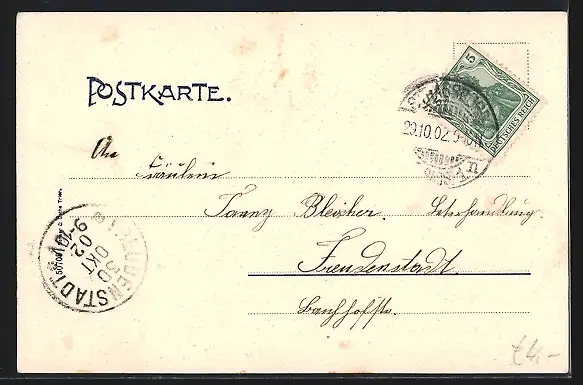 POSTKARTE.
5
DEUTSCHES REICH
29.10.02
An
Fräulein
Fanny Bleicher. Lederhandlung.
Freudenstadt
Bahnhofstr.
FREUDENSTADT
30 OKT
02
9-10
50700